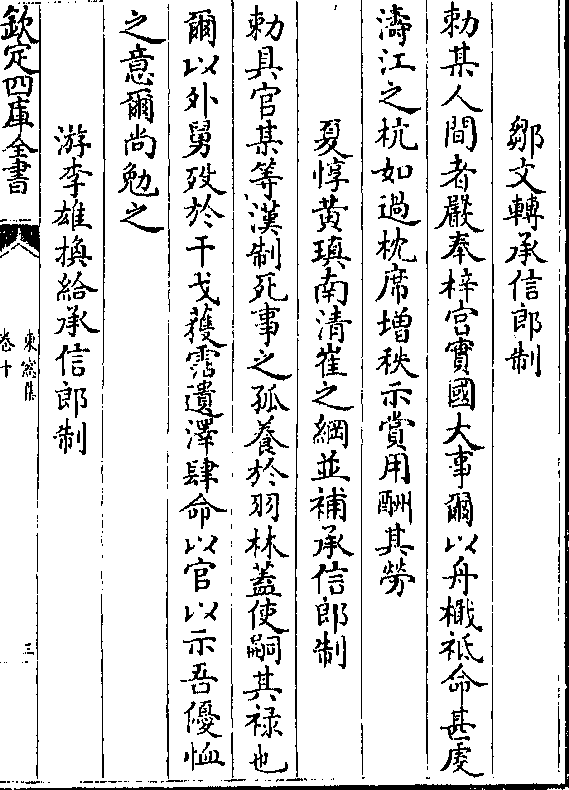 鄒文轉承信郎制
勅某人間者嚴奉梓宮實國大事爾以舟檝祗命甚虔
濤江之杭如過枕席增秩示賞用酬其勞
夏惇黃瑱南清崔之綱並補承信郎制
勅具官某等漢制死事之孤養於羽林蓋使嗣其禄也
爾以外舅殁於干戈蒦霑遺澤肆命以官以示吾優恤
之意爾尚勉之
游李雄換給承信郎制
欽定四庫全書
東窻集
卷十
三